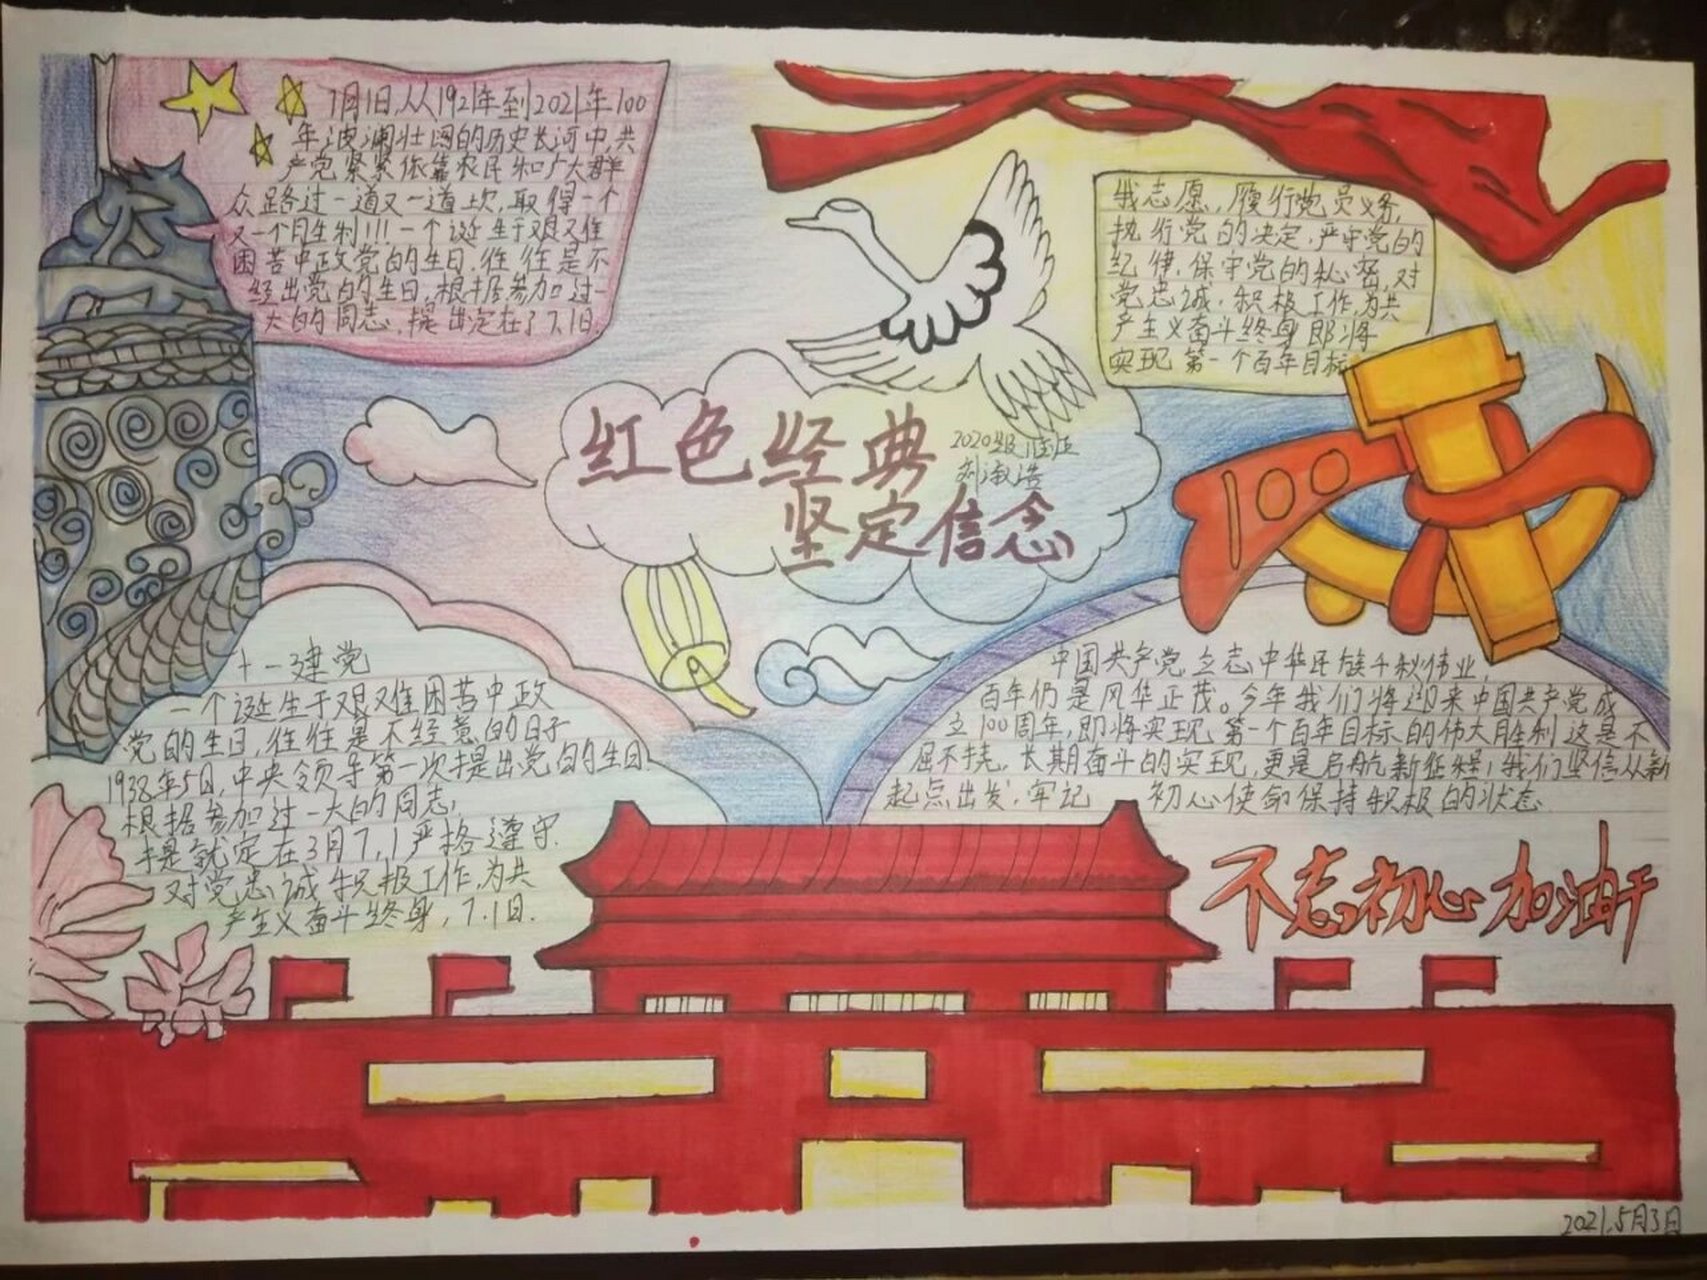 7月1日,从1921年到2021年100
年波澜壮阔的历史长河中,共
产党紧紧依靠农民和广大群
众路过一道又一道坎,取得一个
又一个月生利!!!一个诞生于艰难
困苦中政党的生日,往往是不
经出党的生日,根据参加过一
大的同志,提出定在了7.1日
我志愿,履行党员义务,
执行党的决定,严守党的
纪律,保守党的秘密,对
党忠诚,积极工作,为共
产主义奋斗终身即将
实现第一个百年目标
红色经典
坚定信念
2020级
100
十一建党
一个诞生于艰难困苦中政
党的生日,往往是不经意的日子
1938年5日,中央领导第一次提出党的生日.
根据参加过一大的同志,
于是就定在3月7,1严格遵守.
对党忠诚积极工作,为共
产主义奋斗终身,7.1日.
中国共产党立志中华民族千秋伟业,
百年仍是风华正茂。今年我们将迎来中国共产党成
立100周年,即将实现第一个百年目标的伟大胜利这是不
屈不挠,长期奋斗的实现,更是启航新征程!我们坚信从新
起点出发,牢记 初心使命保持积极的状态.
不忘初心加油干
2021.5月3日